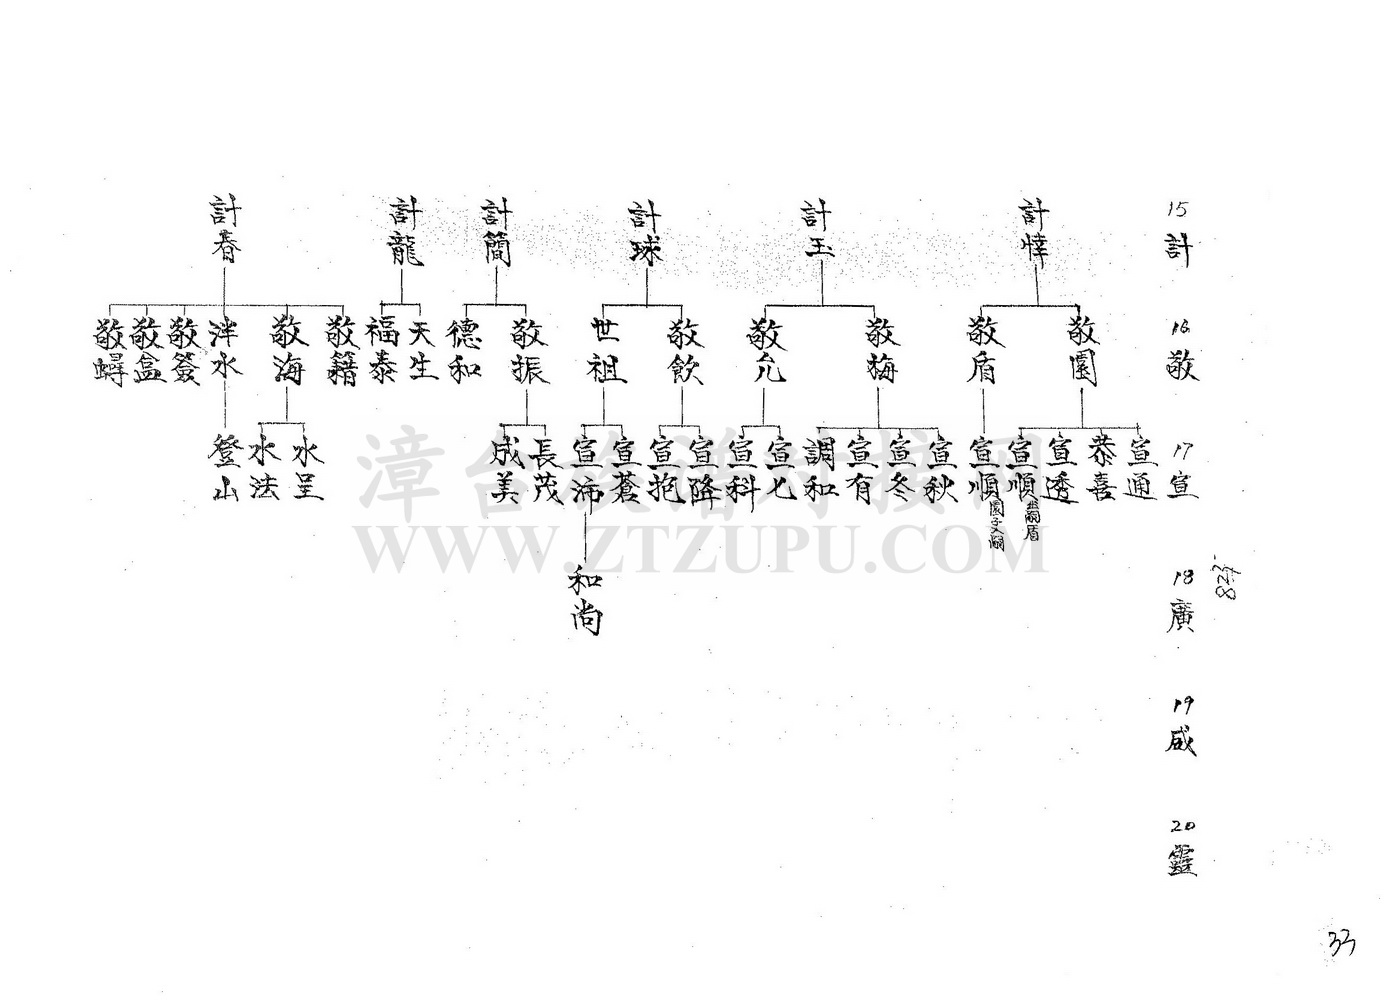 15 計
16 敬
17 宣
18 廣
19 咸
20 靈
823
計悻
計玉
計球
計簡
計龍
計春
敬園
敬盾
敬梅
敬允
敬飲
世祖
敬振
德和
天生
福泰
敬籍
敬海
泮水
敬簽
敬盒
敬蟳
宣通
恭喜
宣透
宣順
出嗣盾
宣順
園子入嗣
宣秋
宣冬
宣有
調和
宣七
宣科
宣降
宣抱
宣蒼
宣沛
長茂
成美
水呈
水法
登山
和尚
漳台族譜对接网
WWW.ZTZUPU.COM
33